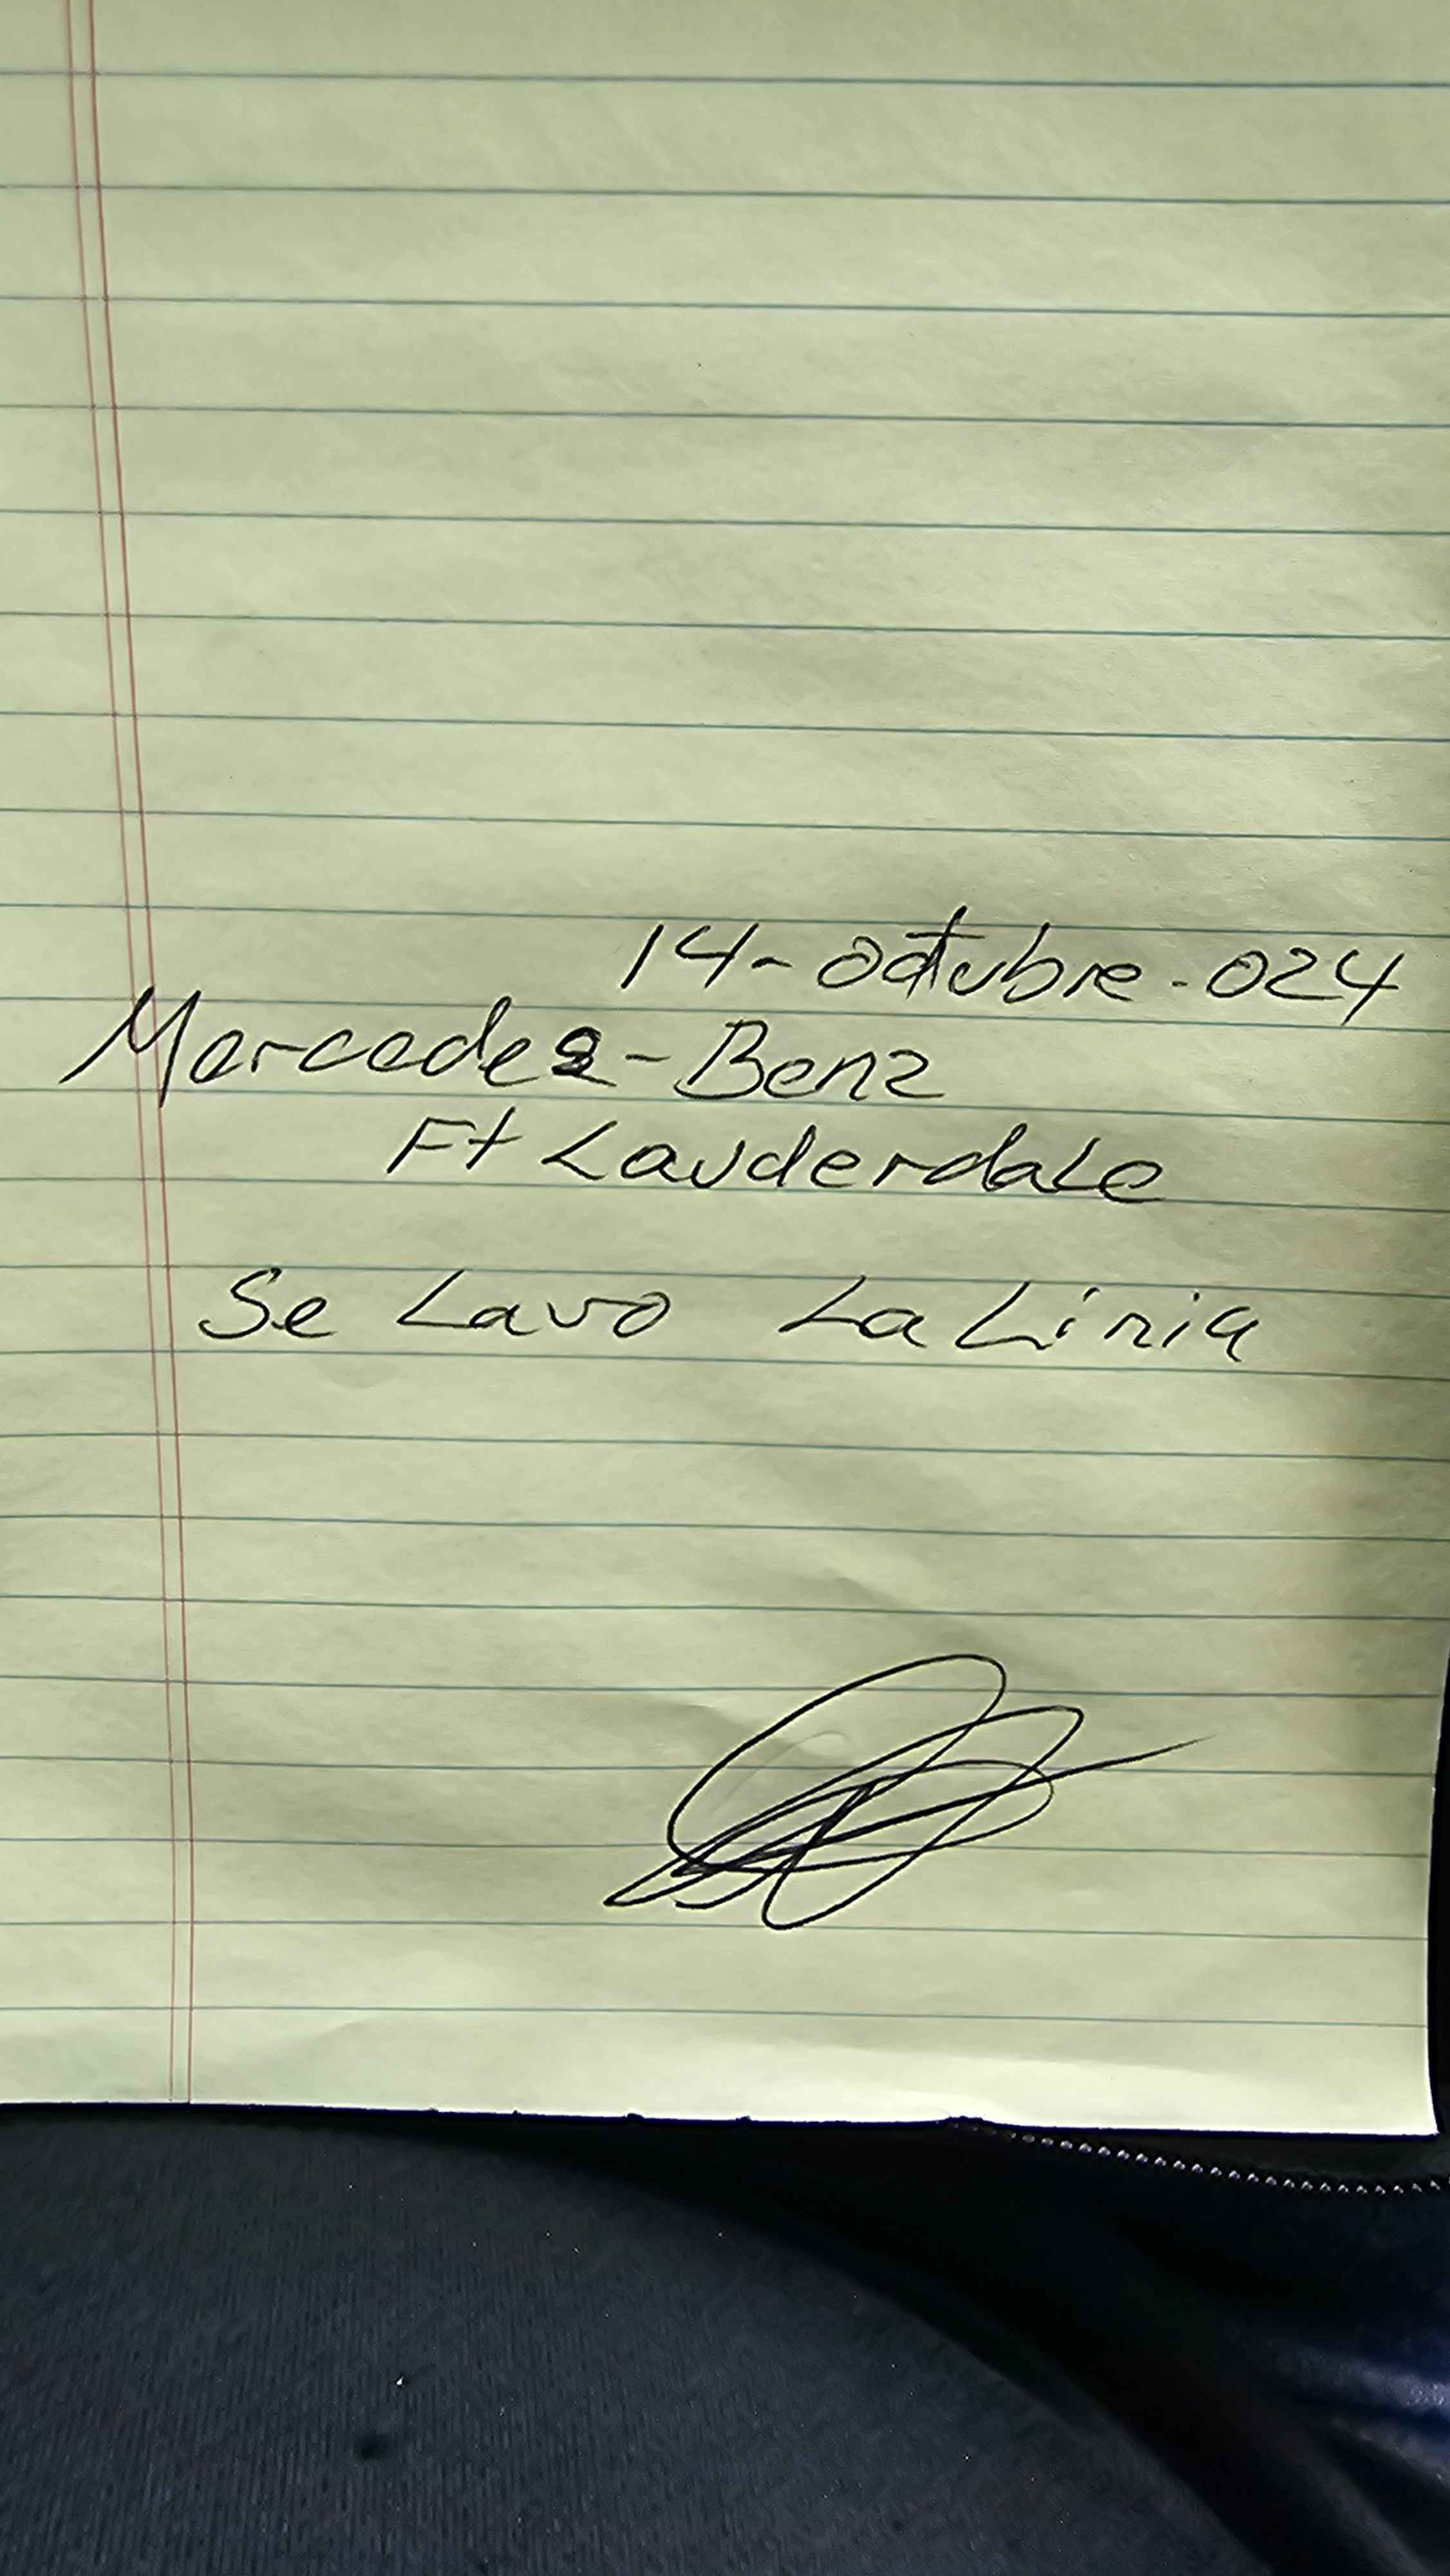 14-octubre-024
Mercedes-Benz
Ft Lauderdale
Se Lavo La Linia